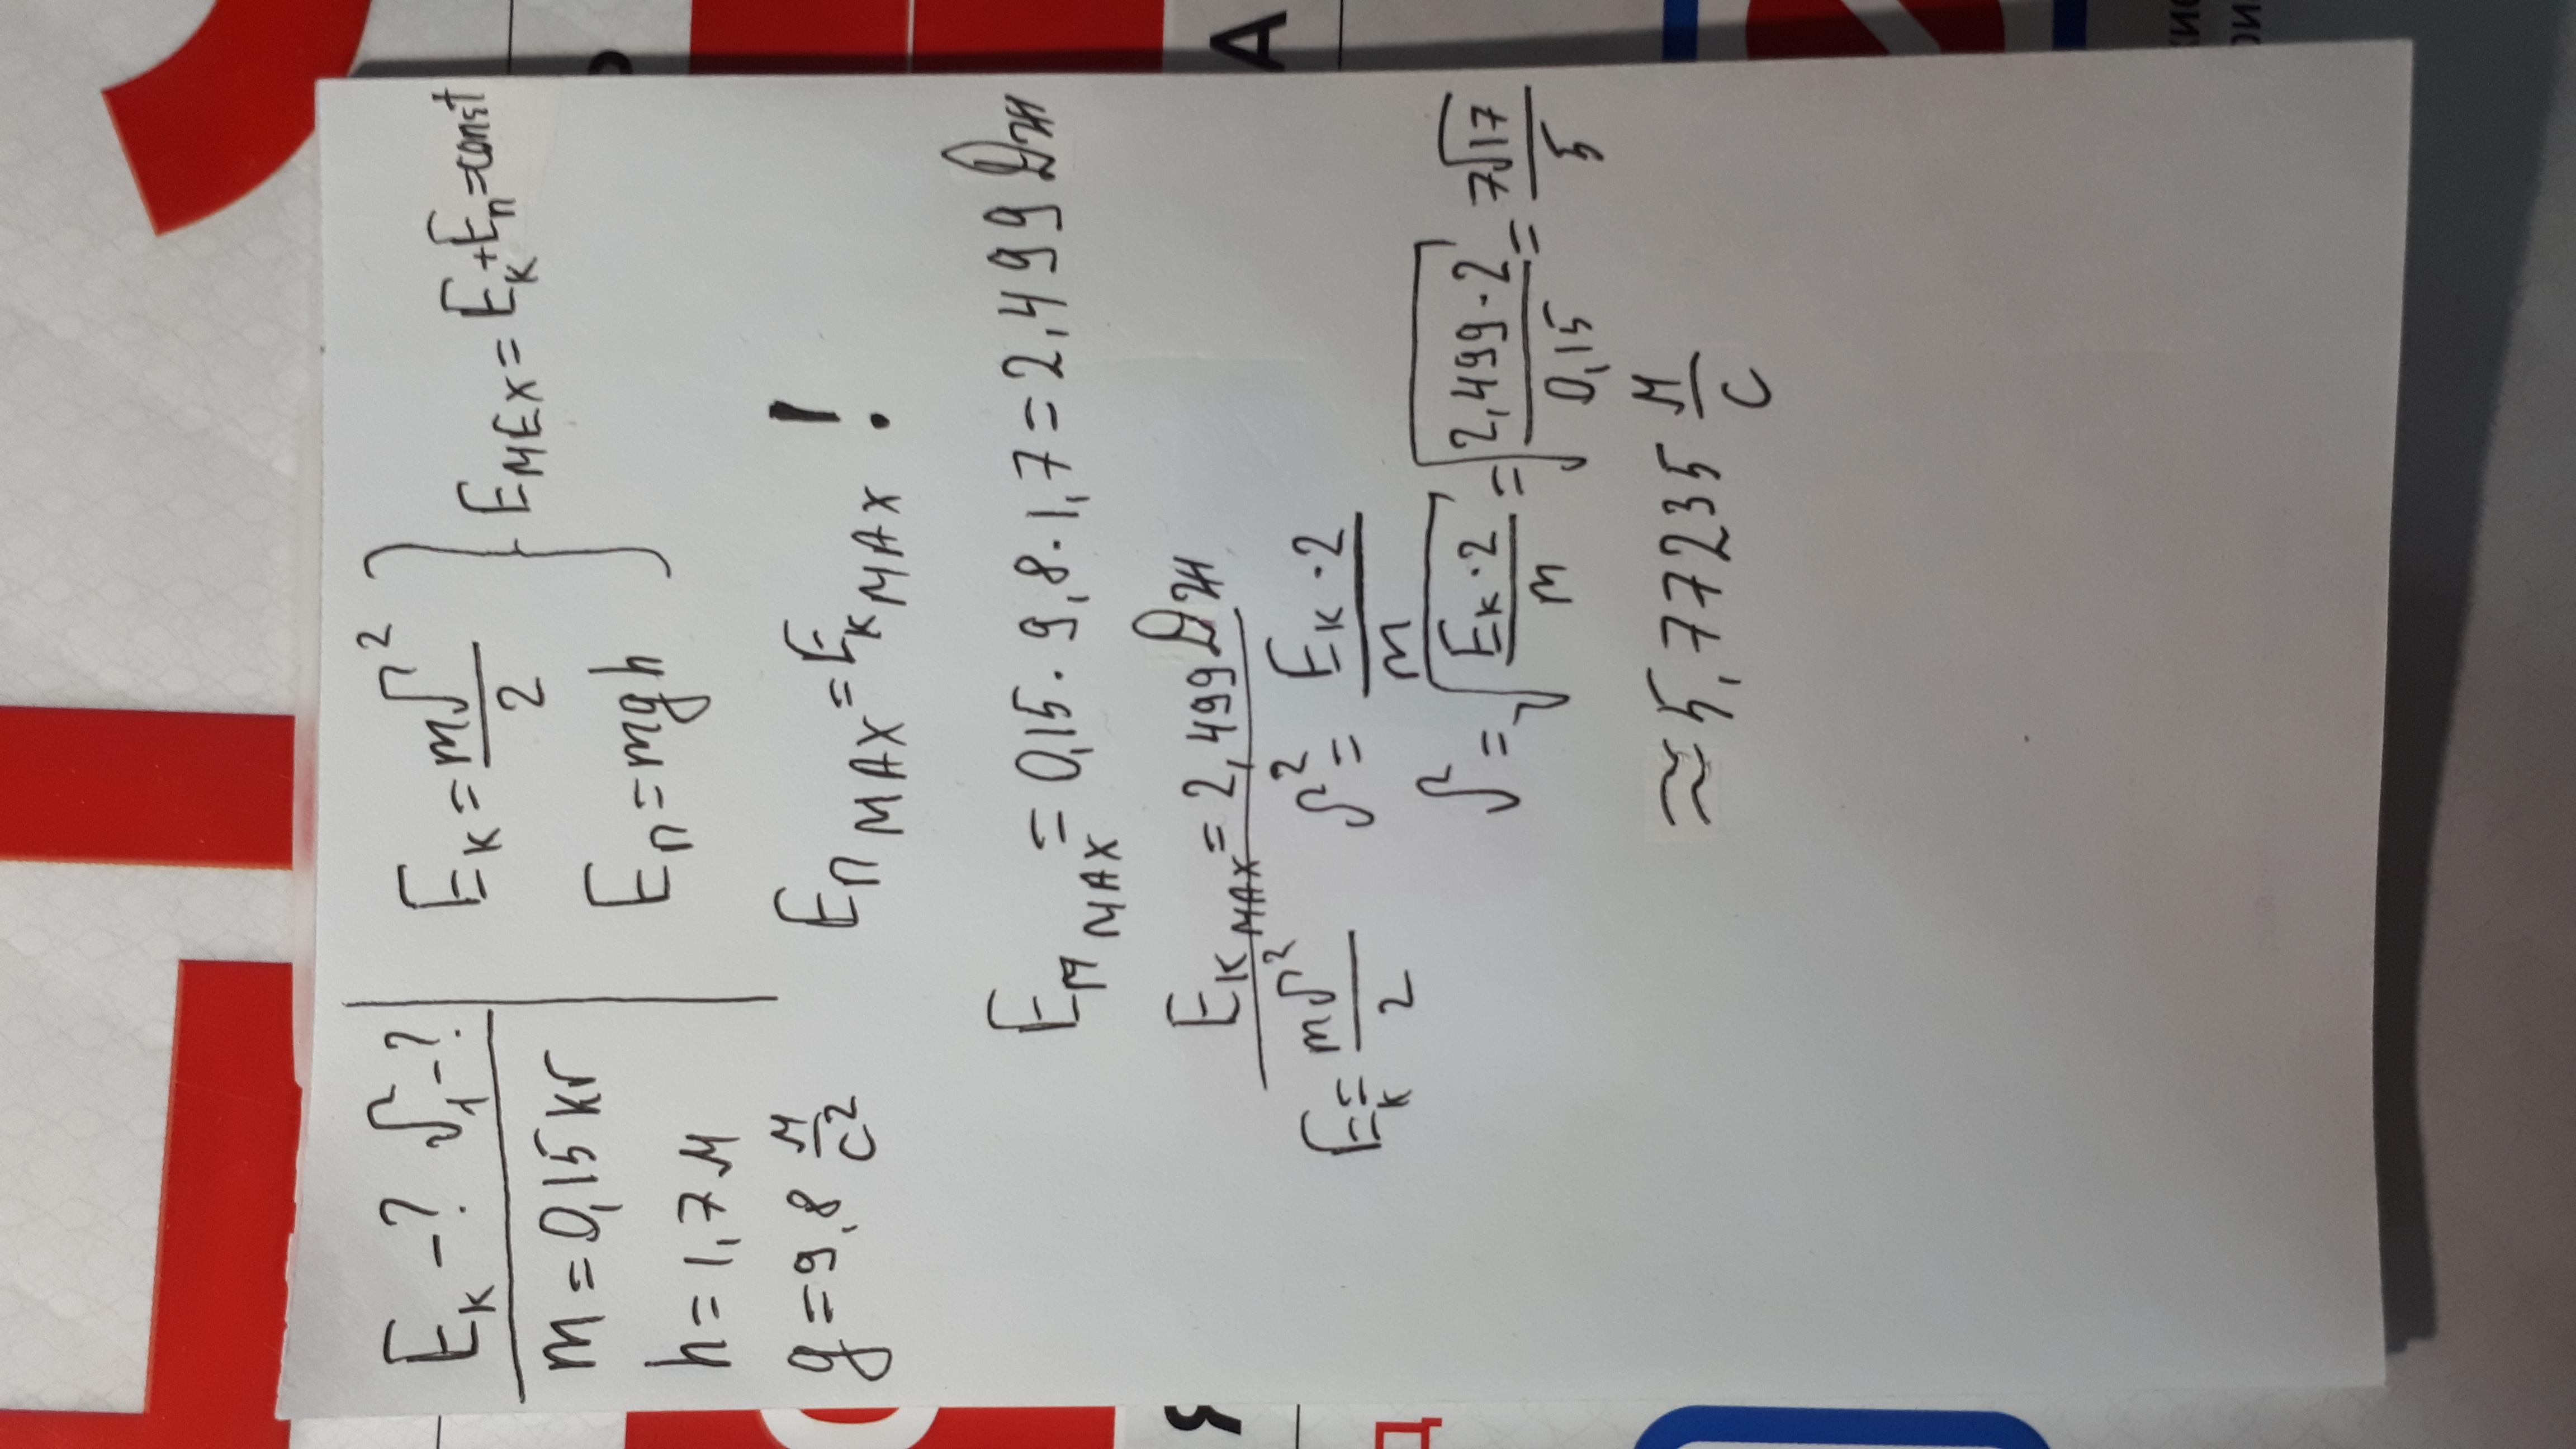 E_к - ? v_1 - ?
m = 0,15 кг
h = 1,7 м
g = 9,8 м/с²
E_к = mv²/2
E_п = mgh
} E_мех = E_к + E_п = const
E_п max = E_к max !
E_п max = 0,15 · 9,8 · 1,7 = 2,499 Дж
E_к max = 2,499 Дж
E_к = mv²/2 v² = E_к · 2/m
v = √(E_к · 2/m) = √(2,499 · 2/0,15) = 7√17/5
≈ 5,77235 м/с
А